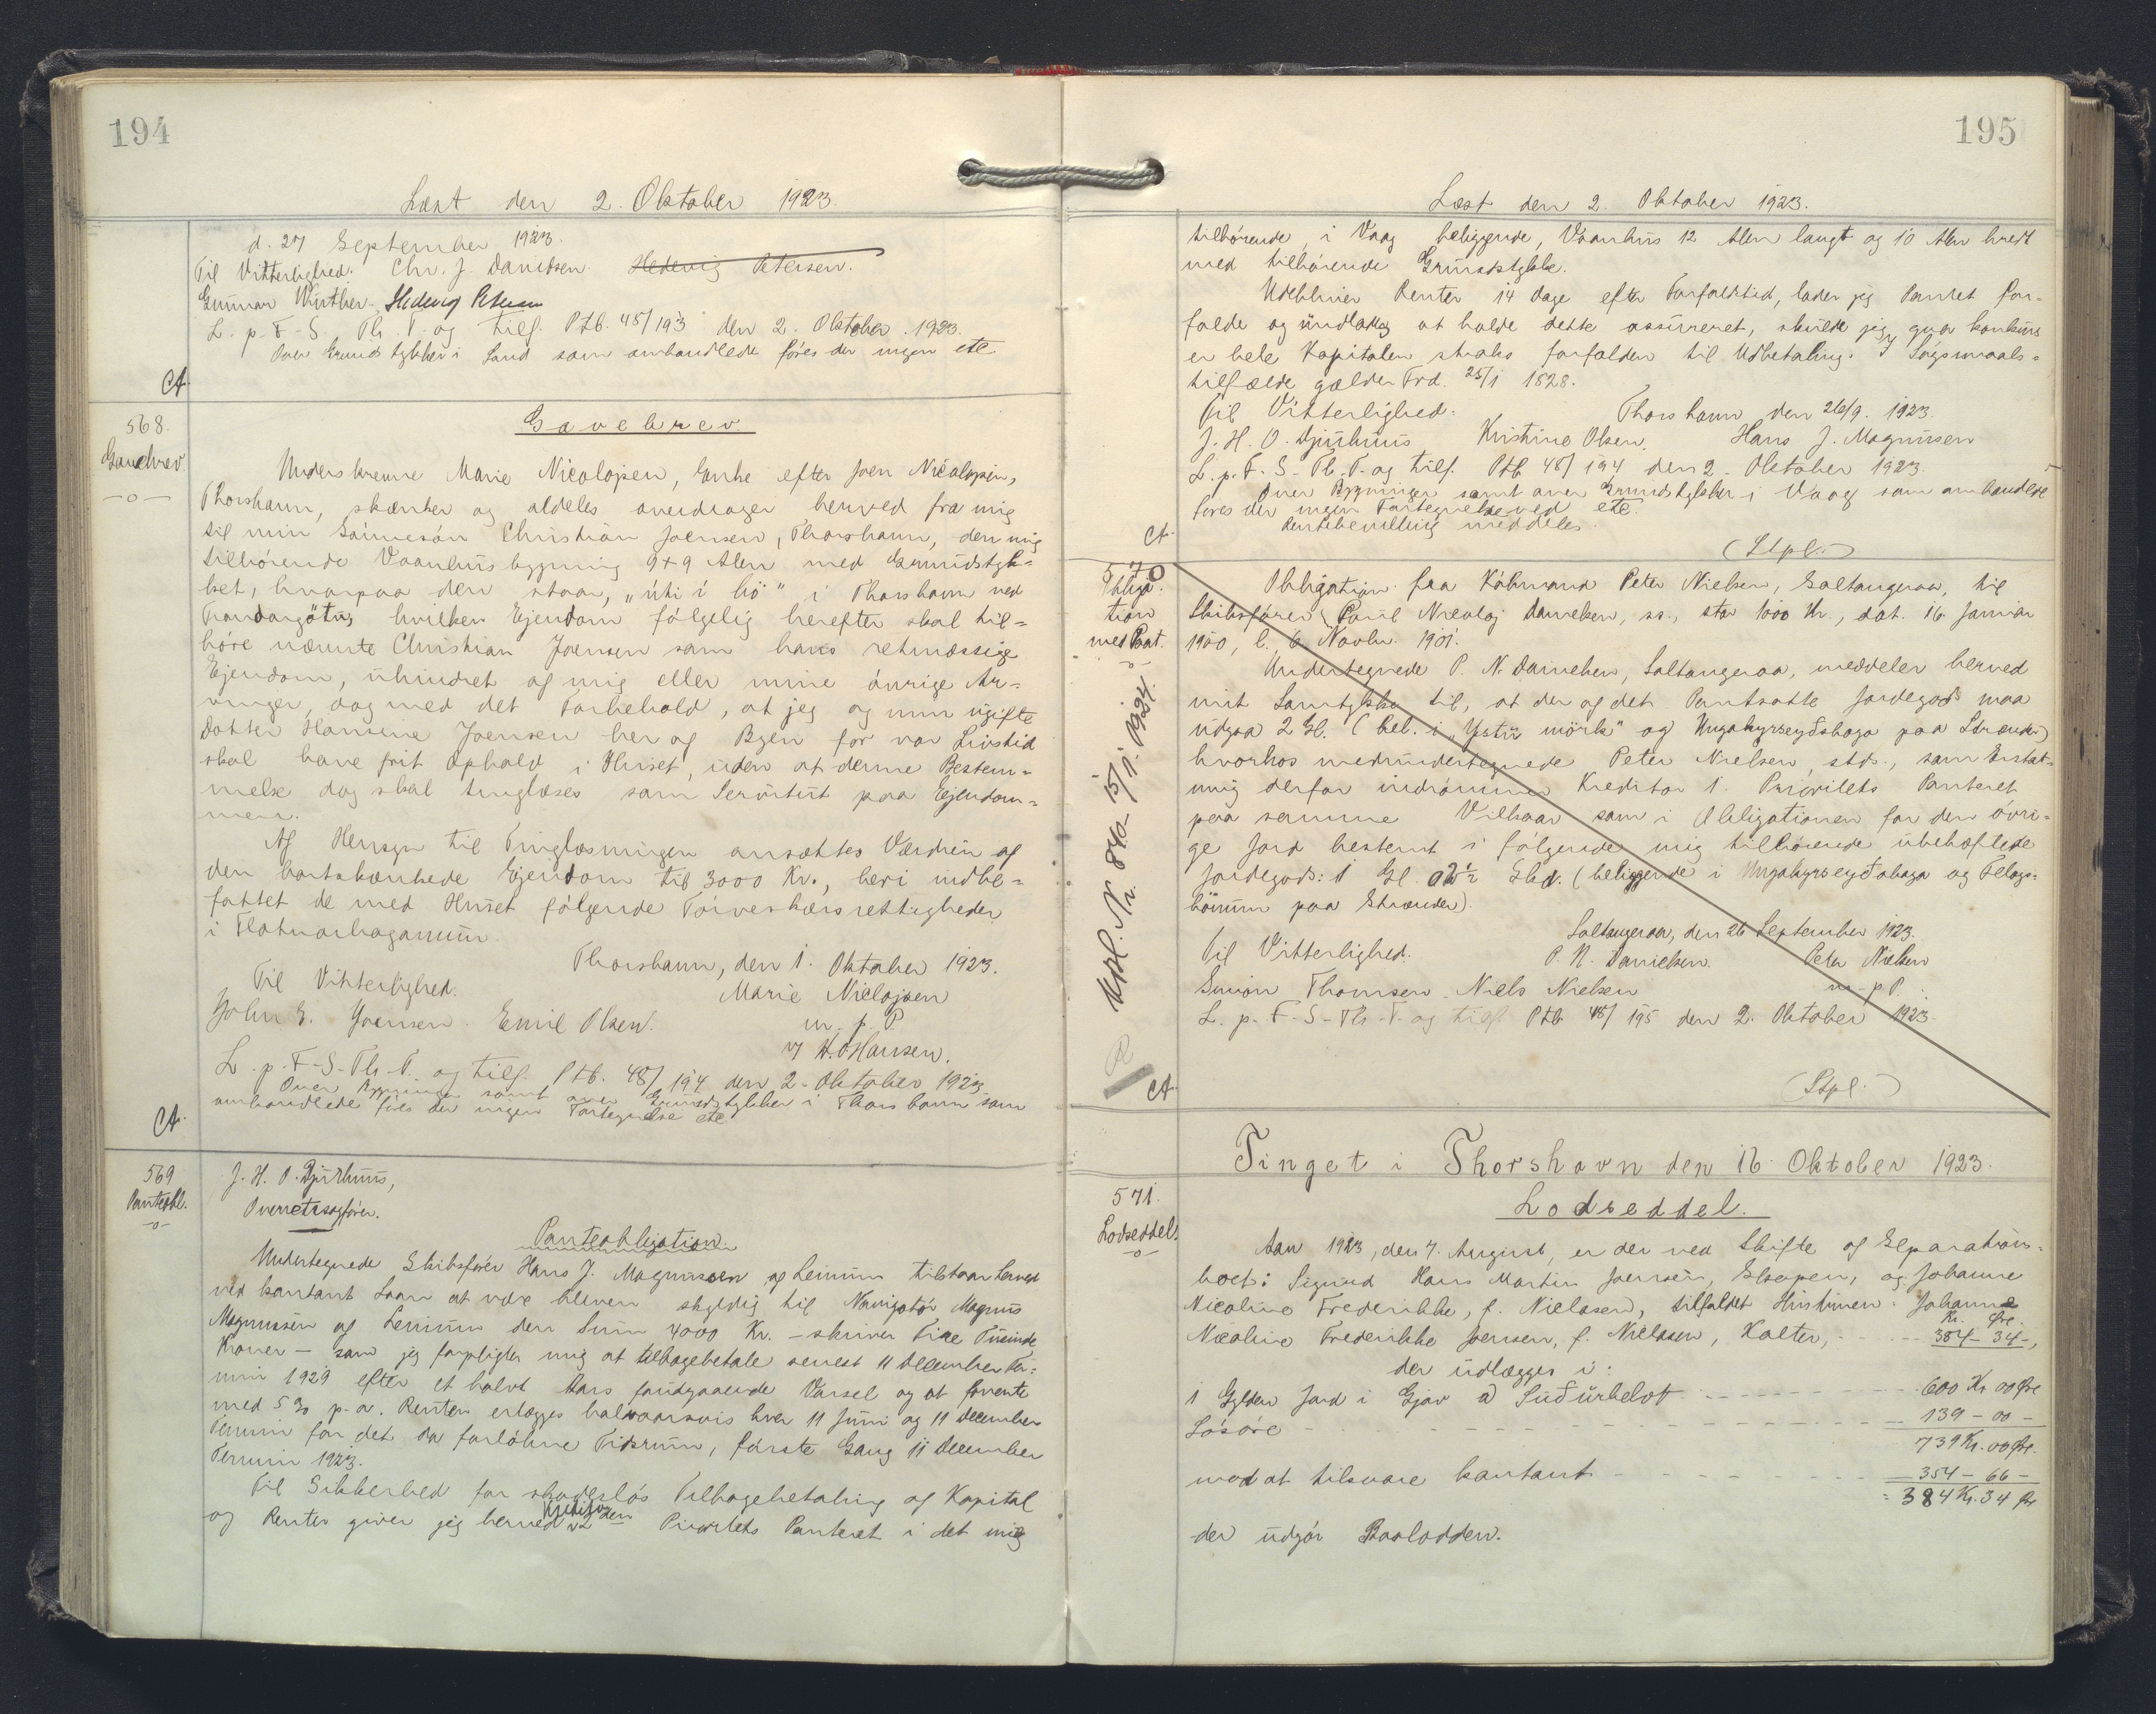 194
Læst den 2. Oktober 1923.
d. 27 September 1923.
Til Vitterlighed. Chr. J. Danielsen. Hedevig Petersen.
Gunnar Winther. Hedevig Petersen
L. p. F-S. Th. T. og tilf. Ptb. 48/193 den 2. Oktober 1923.
Over Grundstykker i Sand som omhandlede føres der ingen etc
Ct.
568.
Gavebrev.
—o—
Gavebrev.
Underskrevne Marie Nicolajsen, Enke efter Joen Nicolajsen,
Thorshavn, skænker og aldeles overdrager herved fra mig
til min Sønnesøn Christian Joensen, Thorshavn, den mig
tilhørende Vaanhusbygning 9+9 Alen med Grundstyk=
ket, hvorpaa den staar, "úti í bø" i Thorshavn ved
Trondargøtu, hvilken Ejendom følgelig herefter skal til=
høre nævnte Christian Joensen som hans retmæssige
Ejendom, uhindret af mig eller mine øvrige Ar=
vinger, dog med det Forbehold, at jeg og min ugifte
Datter Hansine Joensen her af Byen for vor Livstid
skal have frit Ophold i Huset, uden at denne Bestem=
melse dog skal tinglæses som Servitut paa Ejendom=
men.
Af Hensyn til Tinglæsningen ansættes Værdien af
den bortskænkede Ejendom til 3000 Kr., heri indbe=
fattet de med Huset følgende Tørveskærsrettigheder
i Flatnarhaganum.
Thorshavn, den 1. Oktober 1923.
Til Vitterlighed. Marie Nicolajsen
John E. Joensen. Emil Olsen. m. p. P.
v/ W. O Hansen.
L. p. F-S-Th-T. og tilf. Ptb. 48/194 den 2. Oktober 1923
Over Bygninger samt over Grundstykker i Thorshavn som
omhandlede føres der ingen Fortegnelse etc
Ct.
569
Panteobl.
—o—
J. H. O. Djurhuus,
Overretssagfører.
Panteobligation.
Undertegnede Skibsfører Hans J. Magnussen af Leinum tilstaar herved
ved kontant Laan at være bleven skyldig til Navigatør Magnus
Magnussen af Leinum den Sum 4000 Kr. – skriver Fire Tusinde
Kroner – som jeg forpligter mig at tilbagebetale senest 11 December Ter=
min 1929 efter et halvt Aars forudgaaende Varsel og at forrente
med 5 % p. a. Renten erlægges halvaarsvis hver 11 Juni og 11 December
Termin for det da forløbne Tidsrum, første Gang 11 December
Termin 1923.
Til Sikkerhed for skadesløs Tilbagebetaling af Kapital
og Renter giver jeg herved Kreditor den Prioritets Panteret i det mig
195
Læst den 2. Oktober 1923.
tilhørende, i Vaag beliggende, Vaanhus 12 Alen langt og 10 Alen bredt
med tilhørende Grundstykke.
Udebliver Renter 14 Dage efter Forfaldstid, lader jeg Pantet for=
falde og undlader at holde dette assureret, skulde jeg gaa konkurs
er hele Kapitalen straks forfalden til Udbetaling. I Søgsmaals=
tilfælde gælder Frd. 25/1 1828.
Til Vitterlighed: Thorshavn den 26/9. 1923.
J. H. O. Djurhuus Kristine Olsen. Hans J. Magnussen
L. p. F-S-Th-T. og tilf. Ptb 48/194 den 2. Oktober 1923.
Over Bygninger samt over Grundstykker i Vaag som omhandlede
føres der ingen Fortegnelse ved etc.
Rentebevilling meddeles.
Ct.
(Stpl.)
570
Obliga-
tion
med Paat.
—o—
Obligation fra Købmand Peter Nielsen, Saltangeraa, til
Skibsfører Poul Nicolaj Danielsen, ss., stor 1000 Kr., dat. 16. Januar
1900, l. 6. Novbr. 1901.
Undertegnede P. N. Danielsen, Saltangeraa, meddeler herved
mit Samtykke til, at der af det Pantsatte Jordegods maa
udgaa 2 Gl. (bel. i "Ystu mørk" og Ungakyrseyðahaga paa Strænder)
hvorhos medundertegnede Peter Nielsen, stds., som Erstat=
ning derfor indrømmer Kreditor 1. Prioritets Panteret
paa samme Vilkaar som i Obligationen for den øvri=
ge Jord bestemt i følgende mig tilhørende ubehæftede
Jordegods: 1 Gl. 02½ Skd. (beliggende i Ungakyrseyðahaga og Felags=
hønum paa Strænder).
Saltangeraa, den 26 September 1923.
Til Vitterlighed. P. N. Danielsen. Peter Nielsen
Simon Thomsen. Niels Nielsen m. p. P.
L. p. F-S-Th-T. og tilf. Ptb 48/195 den 2. Oktober 1923.
Udsl. Nr. 840 - 15/1. 1924.
Ct.
(Stpl.)
Tinget i Thorshavn den 16. Oktober 1923.
571.
Lodseddel.
—o—
Lodseddel.
Aar 1923, den 7. August, er der ved Skifte og Separations=
boet: Sigurd Hans Martin Joensen, Skopen, og Johanne
Nicoline Frederikke, f. Nielsen, tilfaldet Hustruen Johanne
Kr. Øre.
Nicoline Frederikke Joensen, f. Nielsen, Kolter, - - - 384 - 34 -,
der udlægges i:
1 Gylden Jord i Gjov a) Suðurhelvt - - - 600 Kr 00 Øre
Løsøre - - - 139 - 00 -
739 Kr. 00 Øre.
mod at tilsvare kontant - - - 354 - 66 -
= 384 Kr. 34 Ør
der udgør Boslodden.